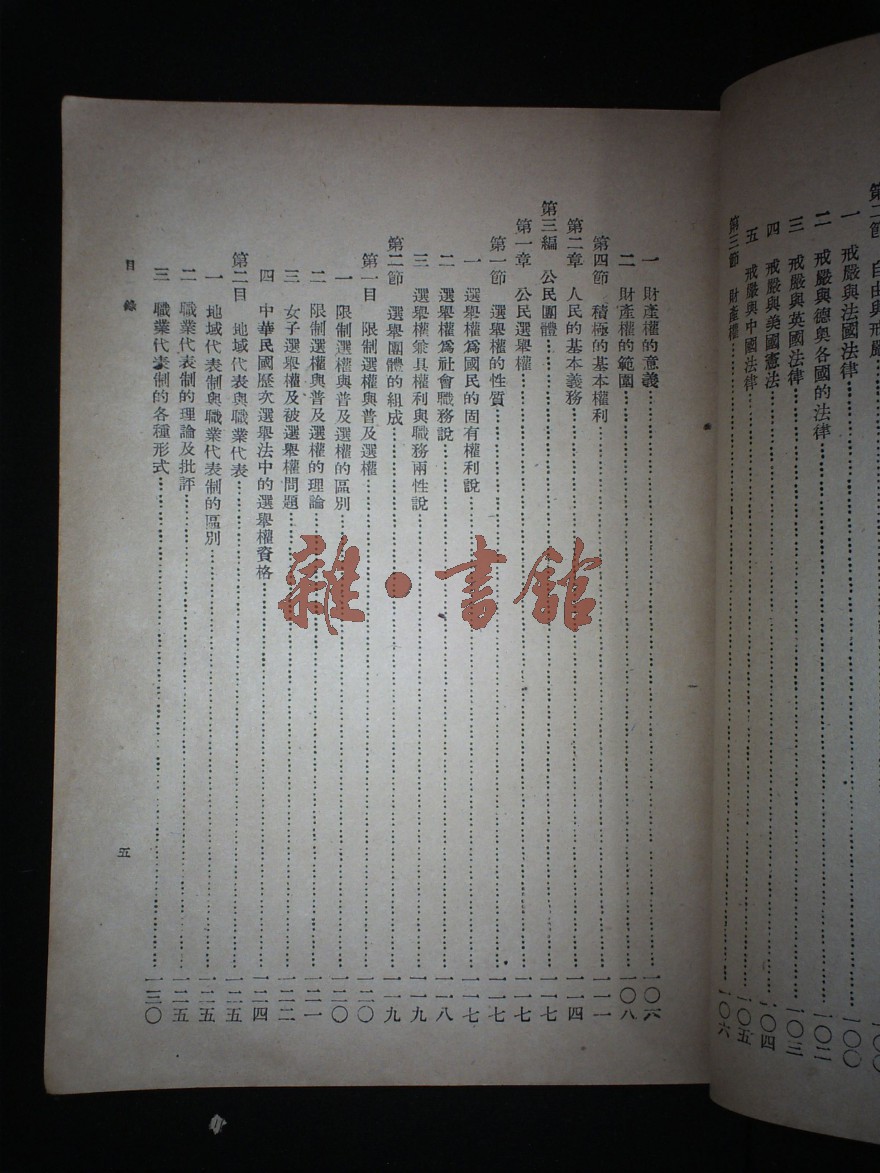 第二節　自由與戒嚴…一〇〇
一　戒嚴與法國法律…一〇〇
二　戒嚴與德奧各國的法律…一〇二
三　戒嚴與英國法律…一〇三
四　戒嚴與美國憲法…一〇四
五　戒嚴與中國法律…一〇五
第三節　財產權…一〇六
一　財產權的意義…一〇六
二　財產權的範圍…一〇八
第四節　積極的基本權利…一一一
第二章　人民的基本義務…一一四
第三編　公民團體…一一七
第一章　公民選舉權…一一七
第一節　選舉權的性質…一一七
一　選舉權爲國民的固有權利說…一一七
二　選舉權爲社會職務說…一一八
三　選舉權兼具權利與職務兩性說…一一九
第二節　選舉團體的組成…一一九
第一目　限制選權與普及選權…一二〇
一　限制選權與普及選權的區別…一二〇
二　限制選權與普及選權的理論…一二一
三　女子選舉權及被選舉權問題…一二二
四　中華民國歷次選舉法中的選舉權資格…一二四
第二目　地域代表與職業代表…一二五
一　地域代表制與職業代表制的區別…一二五
二　職業代表制的理論及批評…一二五
三　職業代表制的各種形式…一三〇
目錄
五
雜·書館